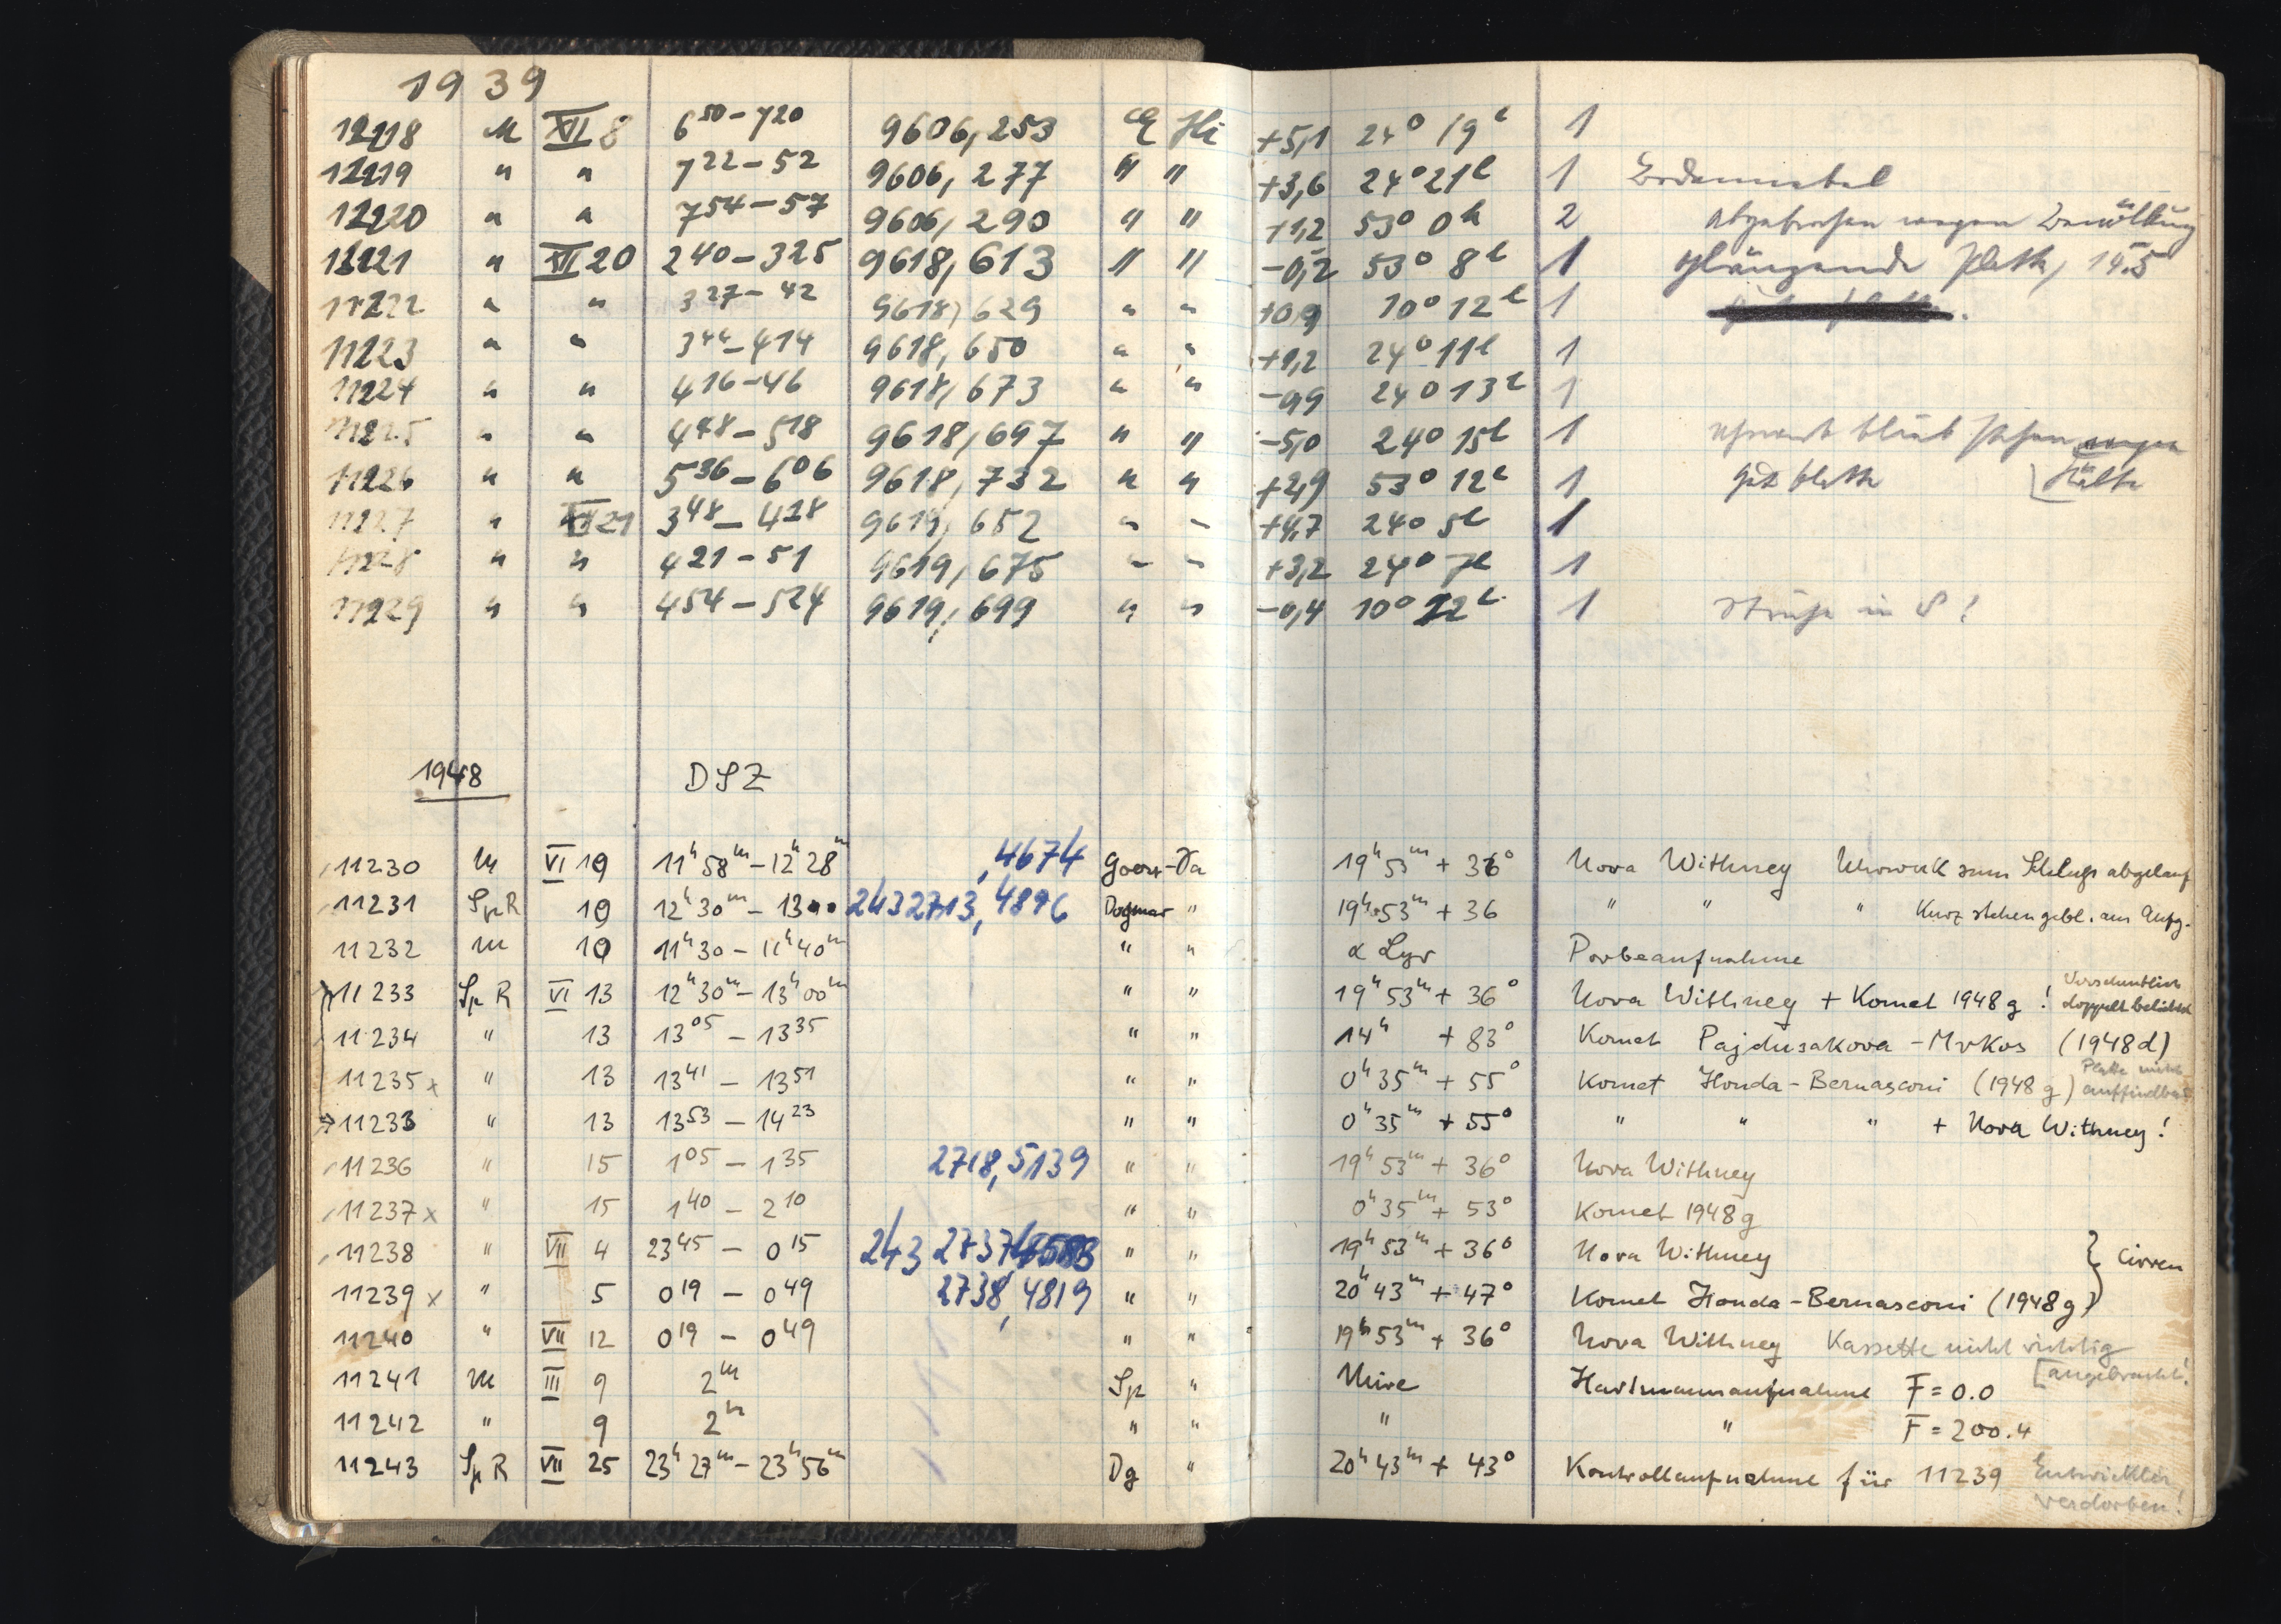 1939
11218 M XII 8 6 50 – 7 20 9606,253 Hi +5,1 24° 19 l 1
11219 " " 7 22 – 52 9606,277 " " +3,6 24° 21 l 1 Bodennebel
11220 " " 7 54 – 57 9606,290 " " +1,2 53° 0 h 2 abgebrochen wegen Bewölkung
11221 " XII 20 2 40 – 3 25 9618,613 " " –0,2 53° 8 l 1 glänzende Platte, 14.5
11222 " " 3 27 – 42 9618,629 " " +0,9 10° 12 l 1
11223 " " 3 44 – 4 14 9618,650 " " +1,2 24° 11 l 1
11224 " " 4 16 – 46 9618,673 " " –0,9 24° 13 l 1
11225 " " 4 48 – 5 18 9618,697 " " –5,0 24° 15 l 1 Uhrwerk blieb stehen wegen
11226 " " 5 36 – 6 06 9618,732 " " +2,9 53° 12 l 1 gute Platte [Kälte
11227 " XII 21 3 48 – 4 18 9619,652 " " +4,7 24° 5 l 1
11228 " " 4 21 – 51 9619,675 " " +3,2 24° 7 l 1
11229 " " 4 54 – 5 24 9619,699 " " –0,4 10° 22 l 1 in S!
1948 DSZ
11230 M VI 19 11h 58m – 12h 28m ,4674 – Da 19h 53m + 36° Nova Withney Uhrwerk zum Schluß abgelauf
11231 Sp R 19 12h 30m – 13 00 243 2713,4896 Dogmar " 19h 53m + 36 " " " Kurz stehen gebl. am Anfg.
11232 M 19 11h 30 – 11h 40m " " α Lyr Porbeaufnahme
11233 Sp R VI 13 12h 30m – 13h 00m " " 19h 53m + 36° Nova Withney + Komet 1948 g ! Versehentlich doppelt belichtet
11234 " 13 13 05 – 13 35 " " 14h + 83° Komet Pajdusakova – Mrkos (1948 d)
11235 x " 13 13 41 – 13 51 " " 0h 35m + 55° Komet Honda – Bernasconi (1948 g) Platte nicht auffindbar
11233 " 13 13 53 – 14 23 " " 0h 35m + 55° " " " + Nova Withney !
11236 " 15 1 05 – 1 35 2718,5139 " " 19h 53m + 36° Nova Withney
11237 x " 15 1 40 – 2 10 " " 0h 35m + 53° Komet 1948 g
11238 " VII 4 23 45 – 0 15 243 2737 " " 19h 53m + 36° Nova Withney } Cirren
11239 x " 5 0 19 – 0 49 2738,4819 " " 20h 43m + 47° Komet Honda – Bernasconi (1948 g)
11240 " VII 12 0 19 – 0 49 " " 19h 53m + 36° Nova Withney Kassette nicht richtig [angebracht!
11241 M III 9 2m Sp " Mire Hartmannaufnahme F = 0.0
11242 " 9 2m " " " " F = 200.4
11243 Sp R VII 25 23h 27m – 23h 56m Dg " 20h 43m + 43° Kontrollaufnahme für 11239 Entwickler verdorben!